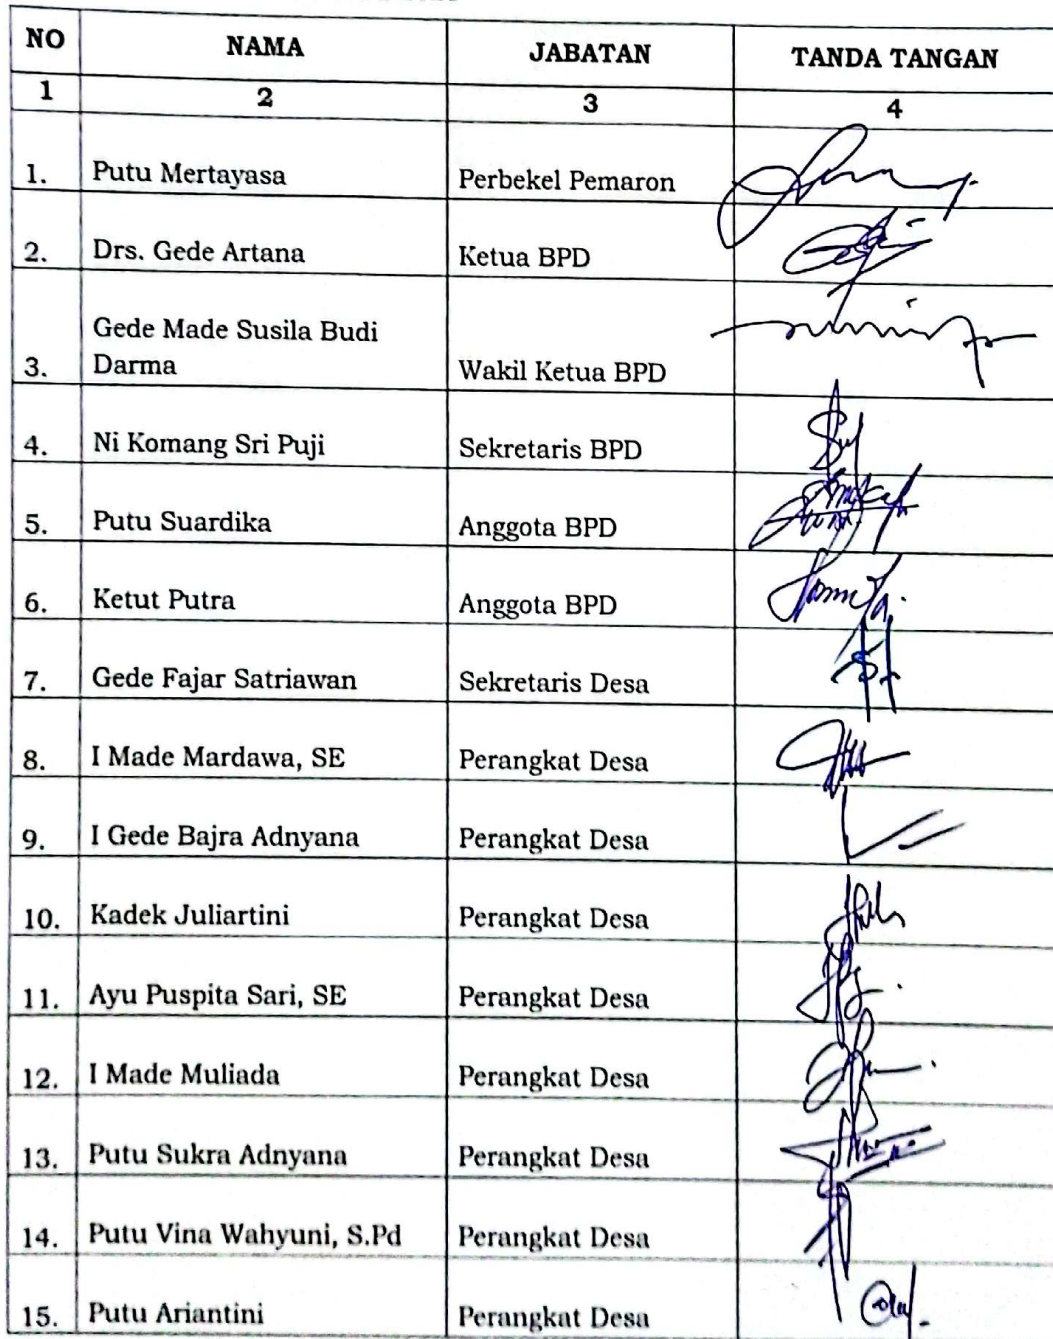 NO NAMA JABATAN TANDA TANGAN
1 2 3 4
1. Putu Mertayasa Perbekel Pemaron
2. Drs. Gede Artana Ketua BPD
Gede Made Susila Budi
3. Darma Wakil Ketua BPD
4. Ni Komang Sri Puji Sekretaris BPD
5. Putu Suardika Anggota BPD
6. Ketut Putra Anggota BPD
7. Gede Fajar Satriawan Sekretaris Desa
8. I Made Mardawa, SE Perangkat Desa
9. I Gede Bajra Adnyana Perangkat Desa
10. Kadek Juliartini Perangkat Desa
11. Ayu Puspita Sari, SE Perangkat Desa
12. I Made Muliada Perangkat Desa
13. Putu Sukra Adnyana Perangkat Desa
14. Putu Vina Wahyuni, S.Pd Perangkat Desa
15. Putu Ariantini Perangkat Desa